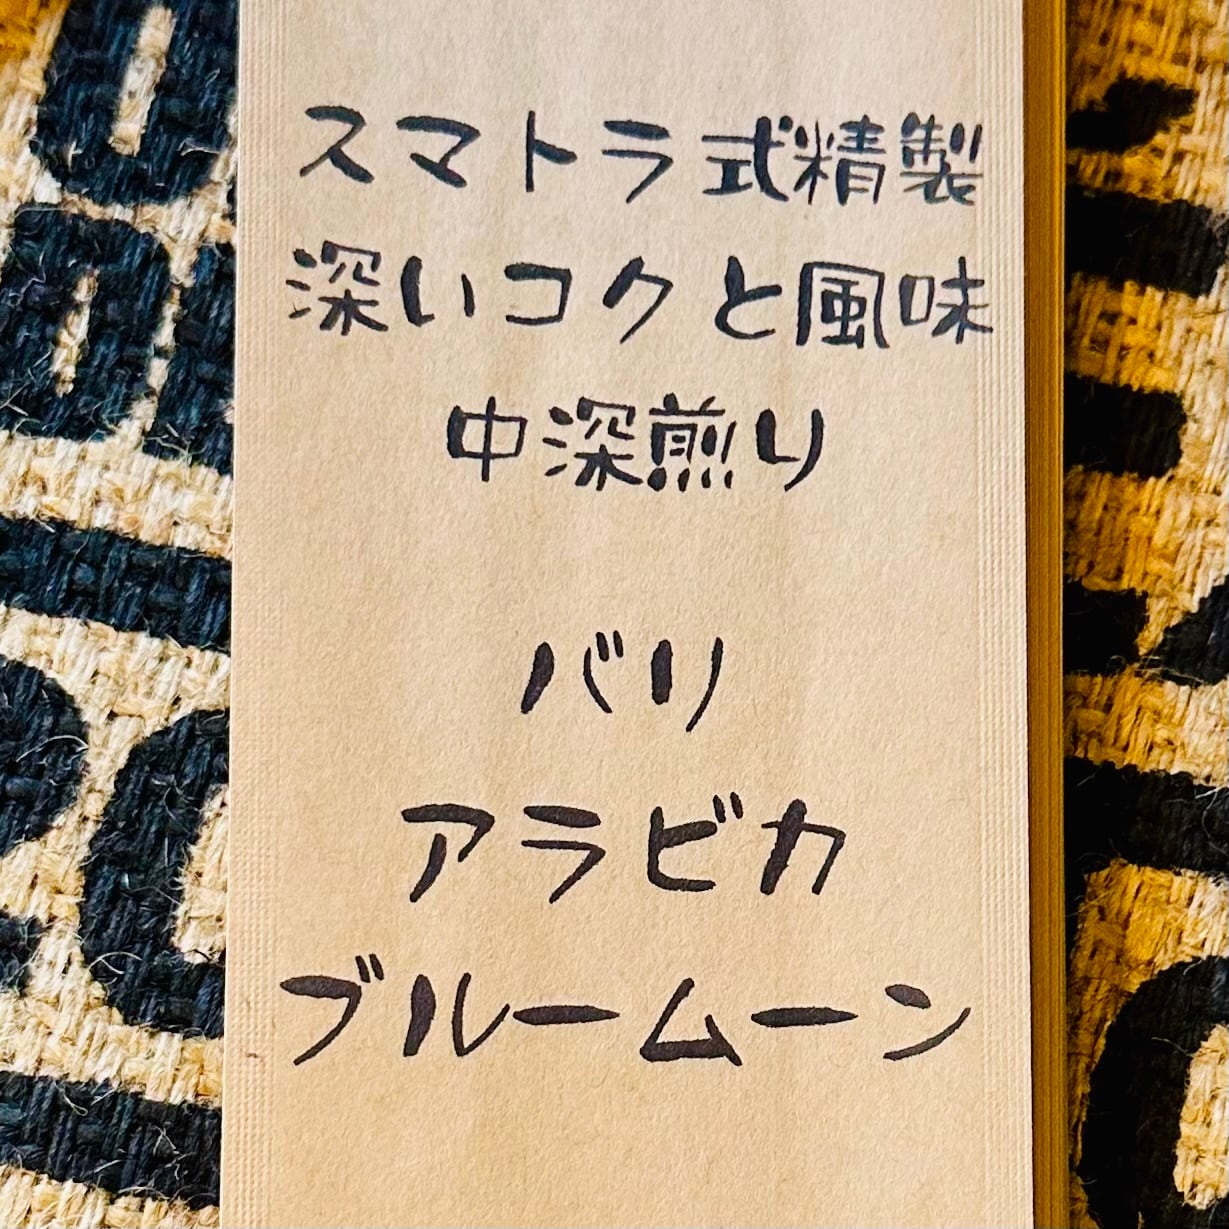 スマトラ式精製
深いコクと風味
中深煎り
バリ
アラビカ
ブルームーン